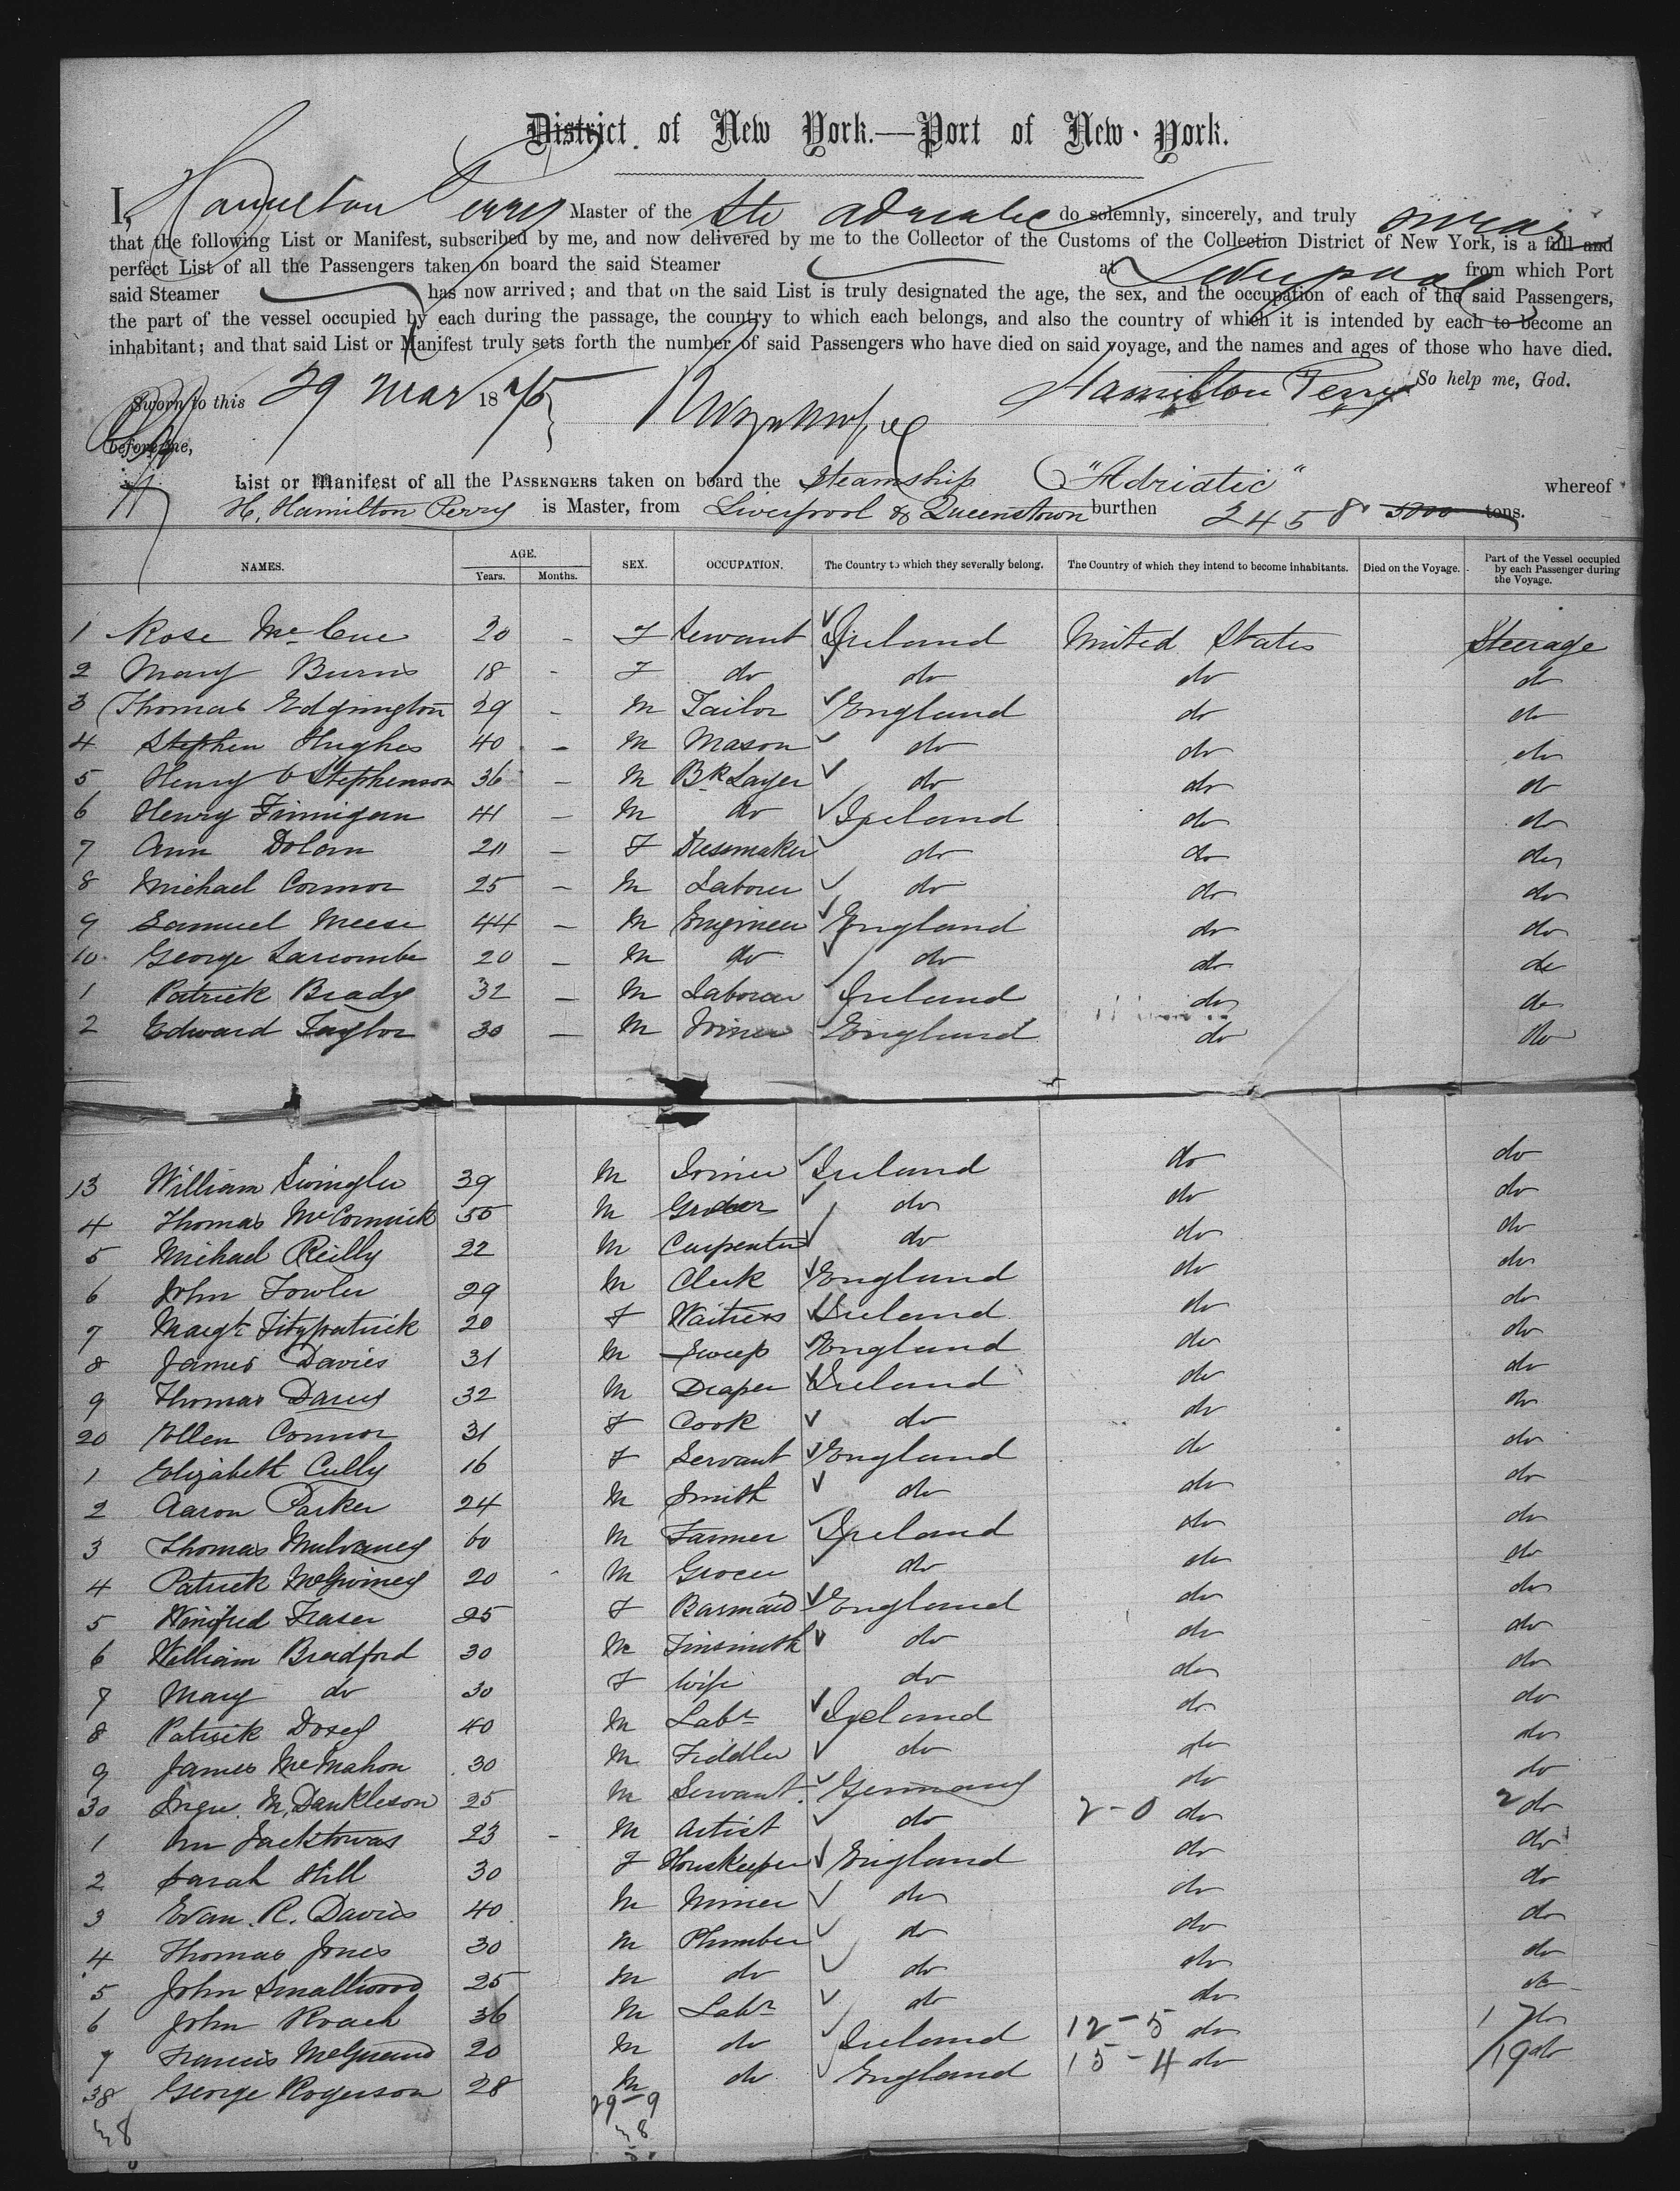 District of New York.—Port of New York.
I, Hamilton Perry Master of the Str Adriatic do solemnly, sincerely, and truly swear
that the following List or Manifest, subscribed by me, and now delivered by me to the Collector of the Customs of the Collection District of New York, is a full and
perfect List of all the Passengers taken on board the said Steamer at Liverpool from which Port
said Steamer has now arrived; and that on the said List is truly designated the age, the sex, and the occupation of each of the said Passengers,
the part of the vessel occupied by each during the passage, the country to which each belongs, and also the country of which it is intended by each to become an
inhabitant; and that said List or Manifest truly sets forth the number of said Passengers who have died on said voyage, and the names and ages of those who have died.
So help me, God.
Sworn to this 29 Mar 1875 Hamilton Perry
before me,
List or Manifest of all the Passengers taken on board the Steamship "Adriatic" whereof
H. Hamilton Perry is Master, from Liverpool & Queenstown burthen 2458 3000 tons.
NAMES. AGE. Years. Months. SEX. OCCUPATION. The Country to which they severally belong. The Country of which they intend to become inhabitants. Died on the Voyage. Part of the Vessel occupied by each Passenger during the Voyage.
1 Rose McCue 20 - F Servant Ireland United States Steerage
2 Mary Burns 18 - F do do do do
3 Thomas Edgington 29 - M Tailor England do do
4 Stephen Hughes 40 - M Mason do do do
5 Henry Stephenson 36 - M Bk Layer do do do
6 Henry Finnigan 41 - M do Ireland do do
7 Ann Dolan - F Dressmaker do do do
8 Michael Connor 25 - M Laborer do do do
9 Samuel Meese 44 - M Engineer England do do
10 George Larcombe 20 - M do do do do
1 Patrick Brady 32 - M Laborer Ireland do do
2 Edward Taylor 30 - M England do do
13 William Swingler 39 M Ireland do do
4 Thomas McCormick M Grocer do do do
5 Michael Reilly 22 M Carpenter do do do
6 John Fowler 29 M Clerk England do do
7 Margt Fitzpatrick 20 F Waitress Ireland do do
8 James Davies 31 M Sweep England do do
9 Thomas Darcy 32 M Draper Ireland do do
20 Ellen Connor 31 F Cook do do do
1 Elizabeth Cully 16 F Servant England do do
2 Aaron Parker 24 M Smith do do do
3 Thomas Mulvaney 60 M Farmer Ireland do do
4 Patrick 20 M Grocer do do do
5 Winifred Fraser 25 F Barmaid England do do
6 William Bradford 30 M Tinsmith do do do
7 Mary do 30 F Wife do do do
8 Patrick 40 M Labr Ireland do do
9 James McMahon 30 M Fiddler do do do
30 25 M Servant Germany do do
1 23 - M Artist do 2-0 do 2 do
2 Sarah Hill 30 F Housekeeper England do do
3 Evan R. Davies 40 M Miner do do do
4 Thomas Jones 30 M Plumber do do do
5 John Smallwood 25 M do do do do
6 John Roach 36 M Labr do do do
7 Francis 20 M do Ireland 12-5 do 17 do
38 George Rogerson 28 M do England 15-4 do 19 do
29-9
38